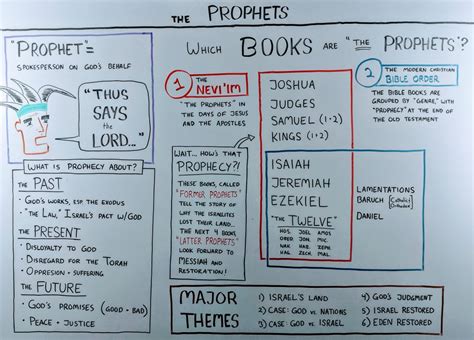 THE PROPHETS
"PROPHET"=
SPOKESPERSON ON GOD'S BEHALF
"THUS
SAYS
THE
LORD..."
WHAT IS PROPHECY ABOUT?
THE PAST
• GOD'S WORKS, ESP THE EXODUS
• "THE LAW," ISRAEL'S PACT W/GOD
THE PRESENT
• DISLOYALTY TO GOD
• DISREGARD FOR THE TORAH
• OPPRESSION + SUFFERING
THE FUTURE
• GOD'S PROMISES (GOOD + BAD)
• PEACE + JUSTICE
WHICH BOOKS ARE "THE PROPHETS"?
1 THE
NEVI'IM
"THE PROPHETS" IN
THE DAYS OF JESUS
AND THE APOSTLES
WAIT... HOW'S THAT
PROPHECY?!
THESE BOOKS, CALLED
"FORMER PROPHETS"
TELL THE STORY OF
WHY THE ISRAELITES
LOST THEIR LAND...
THE NEXT 4 BOOKS,
"LATTER PROPHETS"
LOOK FORWARD TO
MESSIAH AND
RESTORATION!
JOSHUA
JUDGES
SAMUEL (1+2)
KINGS (1+2)
ISAIAH
JEREMIAH
EZEKIEL
"THE TWELVE"
HOS. JOEL AMOS
OBED. JON. MIC.
NAH. HAB. ZEPH.
HAG. ZECH. MAL.
2 THE MODERN CHRISTIAN
BIBLE ORDER
THE BIBLE BOOKS ARE
GROUPED BY "GENRE," WITH
"PROPHECY" AT THE END OF
THE OLD TESTAMENT
LAMENTATIONS
BARUCH [Catholic/Orthodox]
DANIEL
MAJOR
THEMES
1) ISRAEL'S LAND
2) CASE: GOD VS. NATIONS
3) CASE: GOD VS. ISRAEL
4) GOD'S JUDGMENT
5) ISRAEL RESTORED
6) EDEN RESTORED